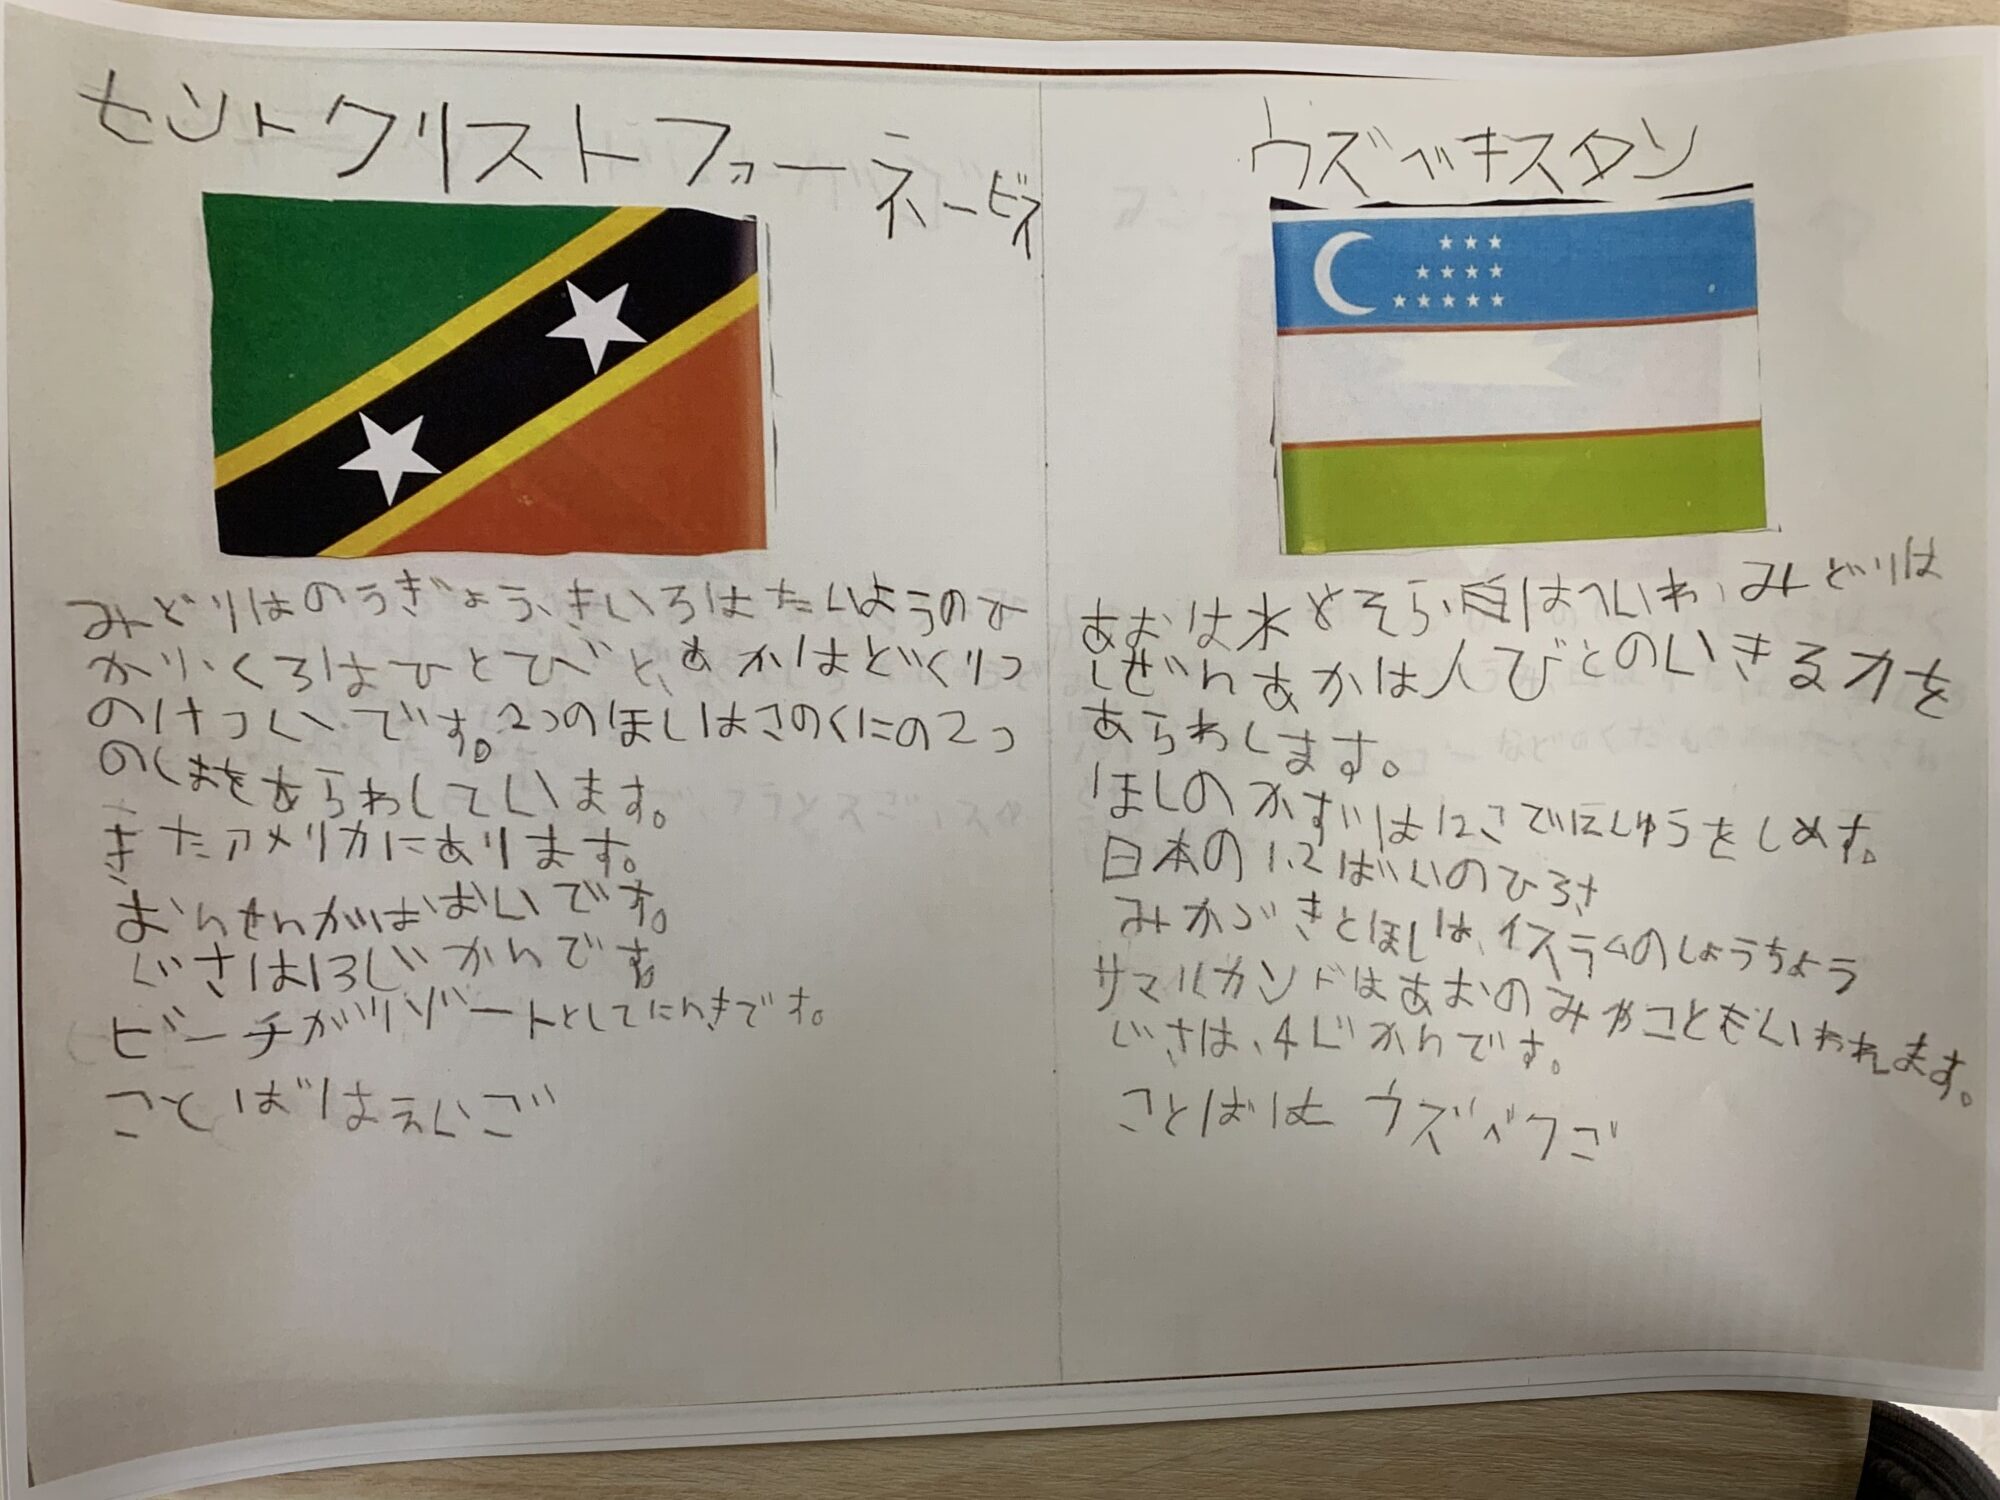 セントクリストファーネービス
みどりはのうぎょう、きいろはたいようのひ
かり、くろはひとびと、あかはどくりつ
のけつい、です。2つのほしはこのくにの2つ
のしまをあらわしています。
きたアメリカにあります。
おんせんがおおいです。
じさは13じかんです。
ビーチがリゾートとしてにんきです。
ことばはえいご
ウズベキスタン
あおは水とそら、白はへいわ、みどりは
しぜんあかは人びとのいきる力を
あらわします。
ほしのかずは12こでにしゅうをしめす。
日本の1.2ばいのひろさ
みかづきとほしは、イスラムのしょうちょう
サマルカンドはあおのみやこともいわれます。
じさは、4じかんです。
ことばは ウズベクご